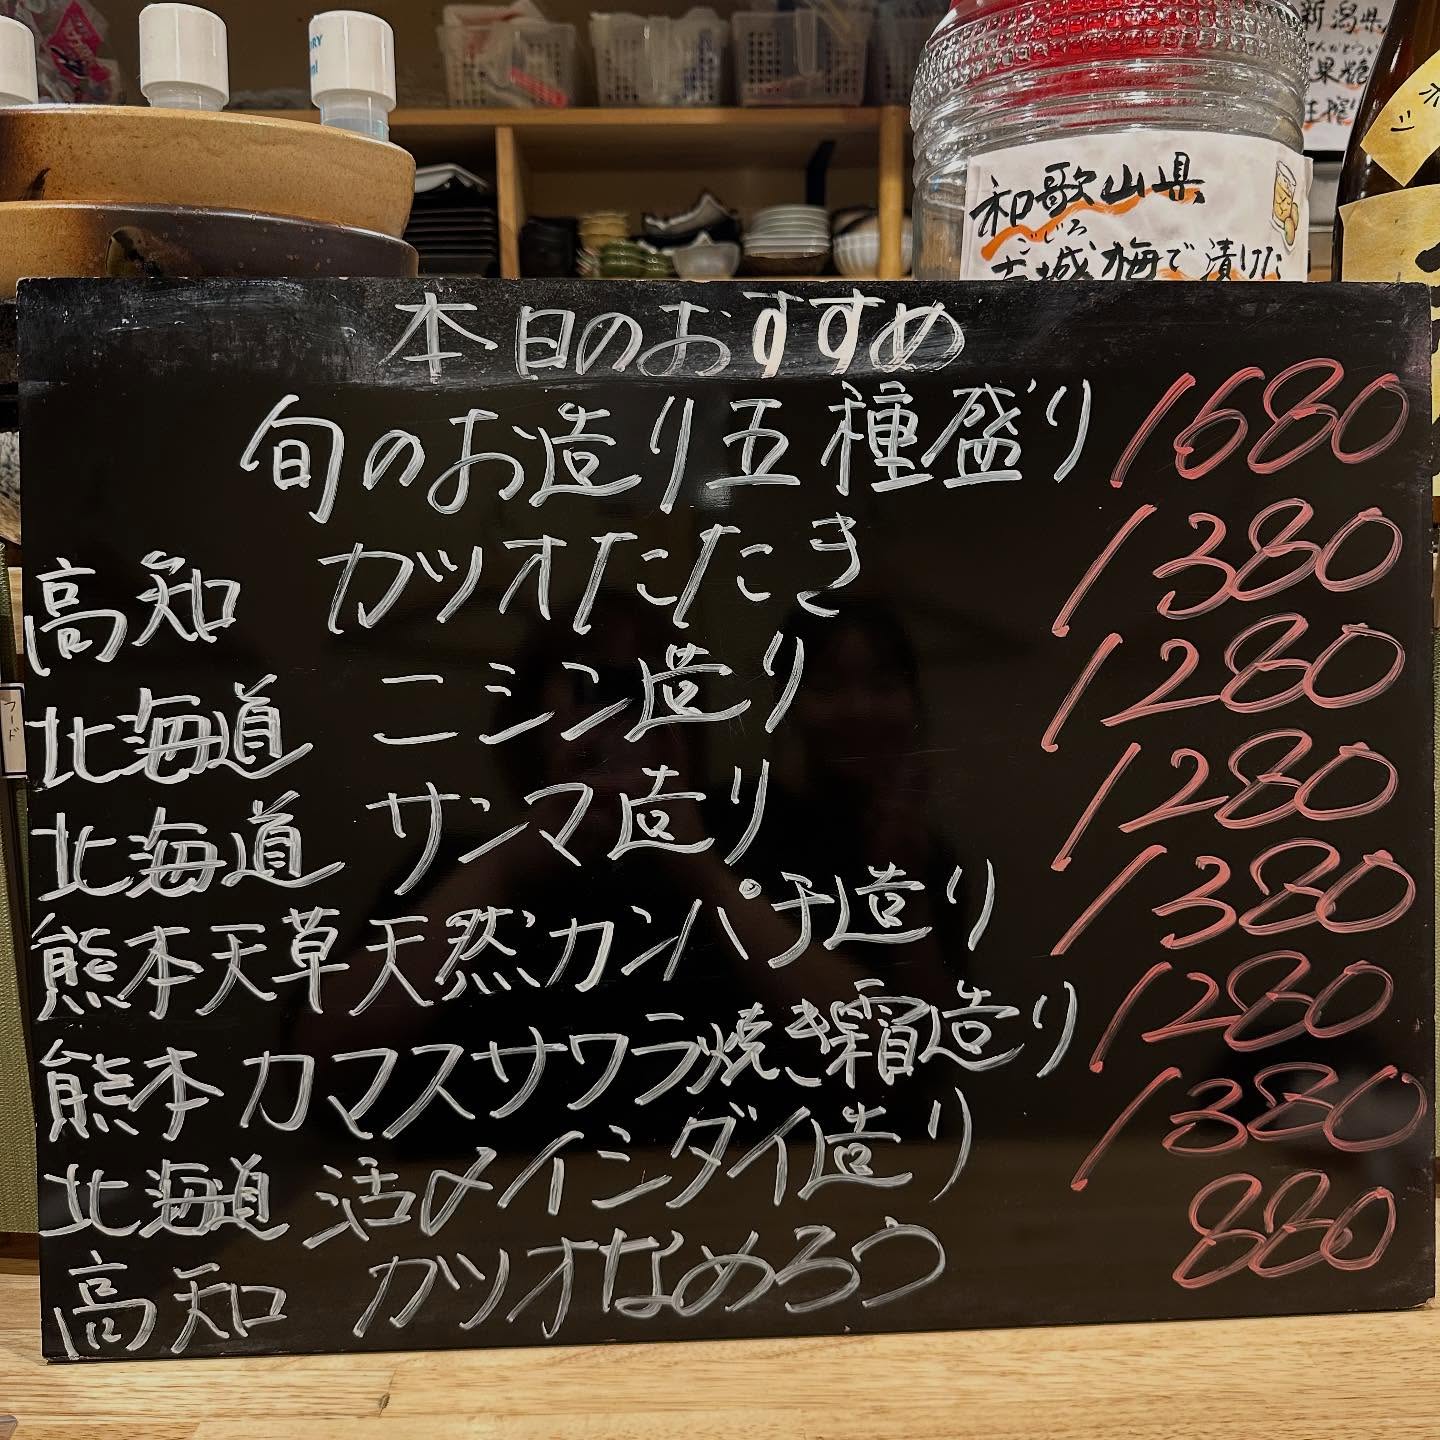 新潟県
和歌山県
ごじろ
古城梅で漬けた
本日のおすすめ
旬のお造り五種盛り 1680
高知 カツオたたき 1380
北海道 ニシン造り 1280
北海道 サンマ造り 1280
熊本天草天然カンパチ造り 1380
熊本カマスサワラ焼き霜造り 1280
北海道 活〆イシダイ造り 1380
高知 カツオなめろう 880
フード